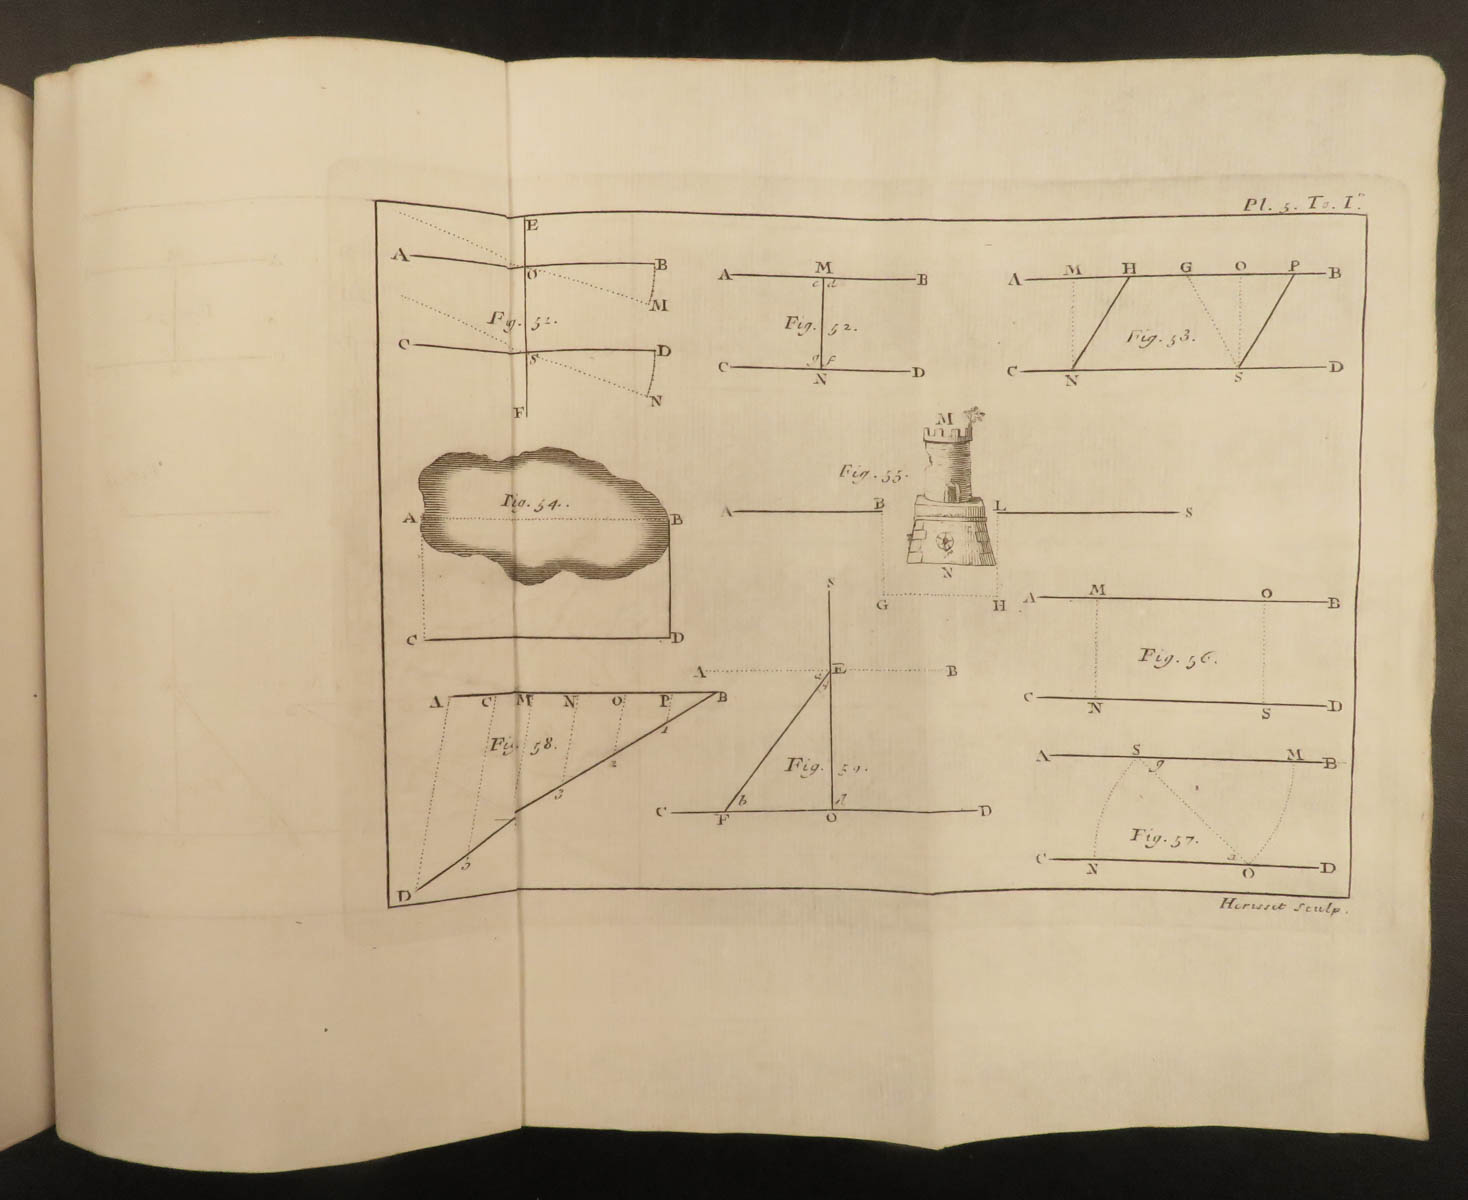 Pl. 5. To. I.r
E
A O B
M
Fig. 51.
C S D
N
F
A M B
c d
Fig. 52.
g f
C N D
A M H G O P B
Fig. 53.
C N S D
Fig. 54.
A B
C D
M
Fig. 55.
A B L S
N
G H
A M O B
Fig. 56.
C N S D
A C M N O P B
1
Fig. 58.
2
3
5
D
S
A E B
Fig. 59.
b d
C F O D
A S M B
g
Fig. 57.
C N O D
Herisset Sculp.